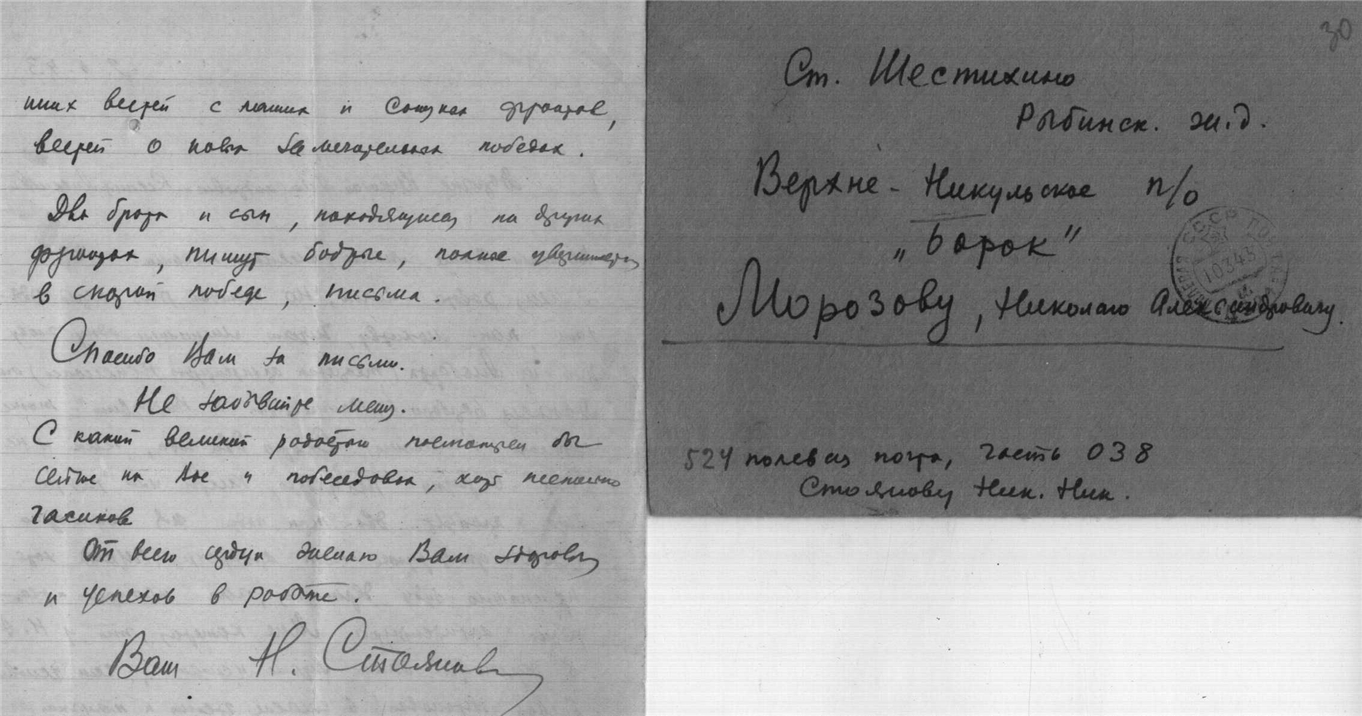 ших вестей с наших и Союзных фронтов,
вестей о новых замечательных победах.
Два брата и сын, находящиеся на других
фронтах, пишут бодрые, полные уверенности
в скорой победе, письма.
Спасибо Вам за письмо.
Не забывайте меня.
С какой великой радостью посмотрел бы
сейчас на Вас и побеседовал, хоть несколько
часиков
От всего сердца желаю Вам здоровья
и успехов в работе.
Ваш Н. Стоянов
30
Ст. Шестихино
Рыбинск. ж.д.
Верхне-Никульское п/о
„Борок"
Морозову, Николаю Александровичу.
524 полевая почта, часть 038
Стоянову Ник. Ник.